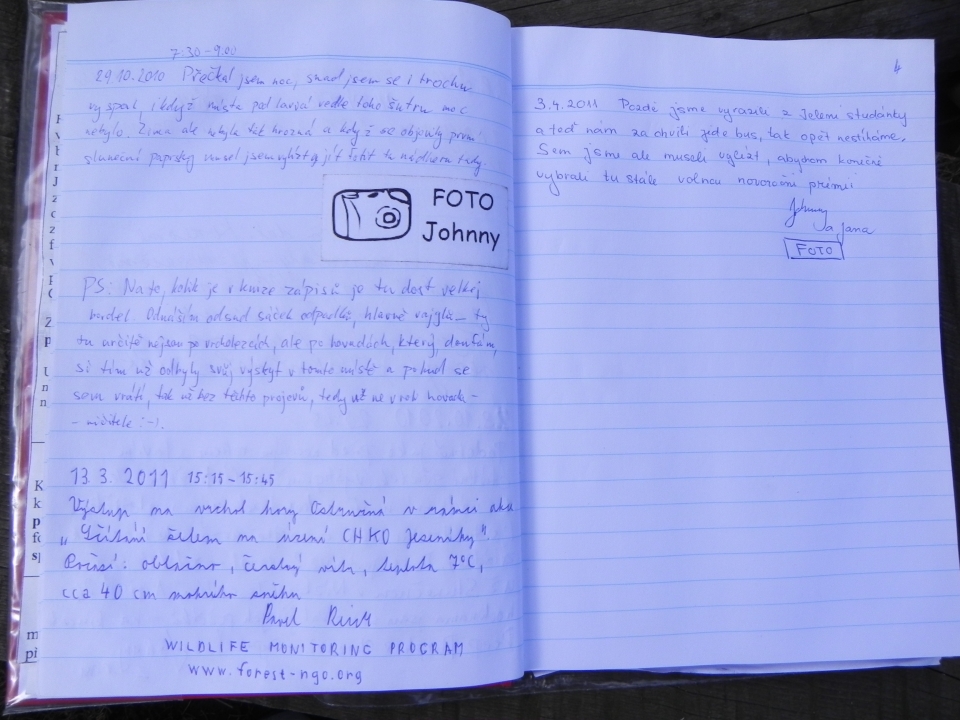 7:30-9.00
29.10.2010 Přečkal jsem noc, snad jsem se i trochu
vyspal, i když místa pod lavicí vedle toho moc
nebylo. Zima ale nebyla tak hrozná a když se objevily první
sluneční paprsky musel jsem vylézt a jít fotit tu nádheru tady.
FOTO
Johnny
PS: Na to, kolik je v knize zápisů je tu dost velkej
bordel. Odnáším odsud sáček odpadků, hlavně vajglů - ty
tu určitě nejsou po vrcholezcích, ale po hovadech, který doufám,
si tím už odbyly svůj výskyt v tomto místě a pokud se
sem vrátí, tak už bez těchto projevů, tedy už ne v roli hovada -
- ničitele :-).
13. 3. 2011 15:15-15:45
Výstup na vrchol hory Ostružná v rámci akce
„Sčítání zelem na území CHKO Jeseníky".
Počasí: oblačno, čerstvý vítr, teplota 7°C,
cca 40 cm mokrého sněhu
Pavel
WILDLIFE MONITORING PROGRAM
www.forest-ngo.org
4
3.4.2011 Pozdě jsme vyrazili z Jelení studánky
a teď nám za chvíli jede bus, tak opět nestíháme.
Sem jsme ale museli vylézt, abychom konečně
vybrali tu stále volnou novoroční prémii
Johnny
a Jana
FOTO